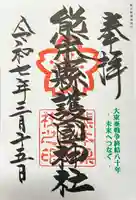 奉拝
大東亜戦争終結八十年
-未来へつなぐ-
熊本縣護國神社
令和七年三月十五日